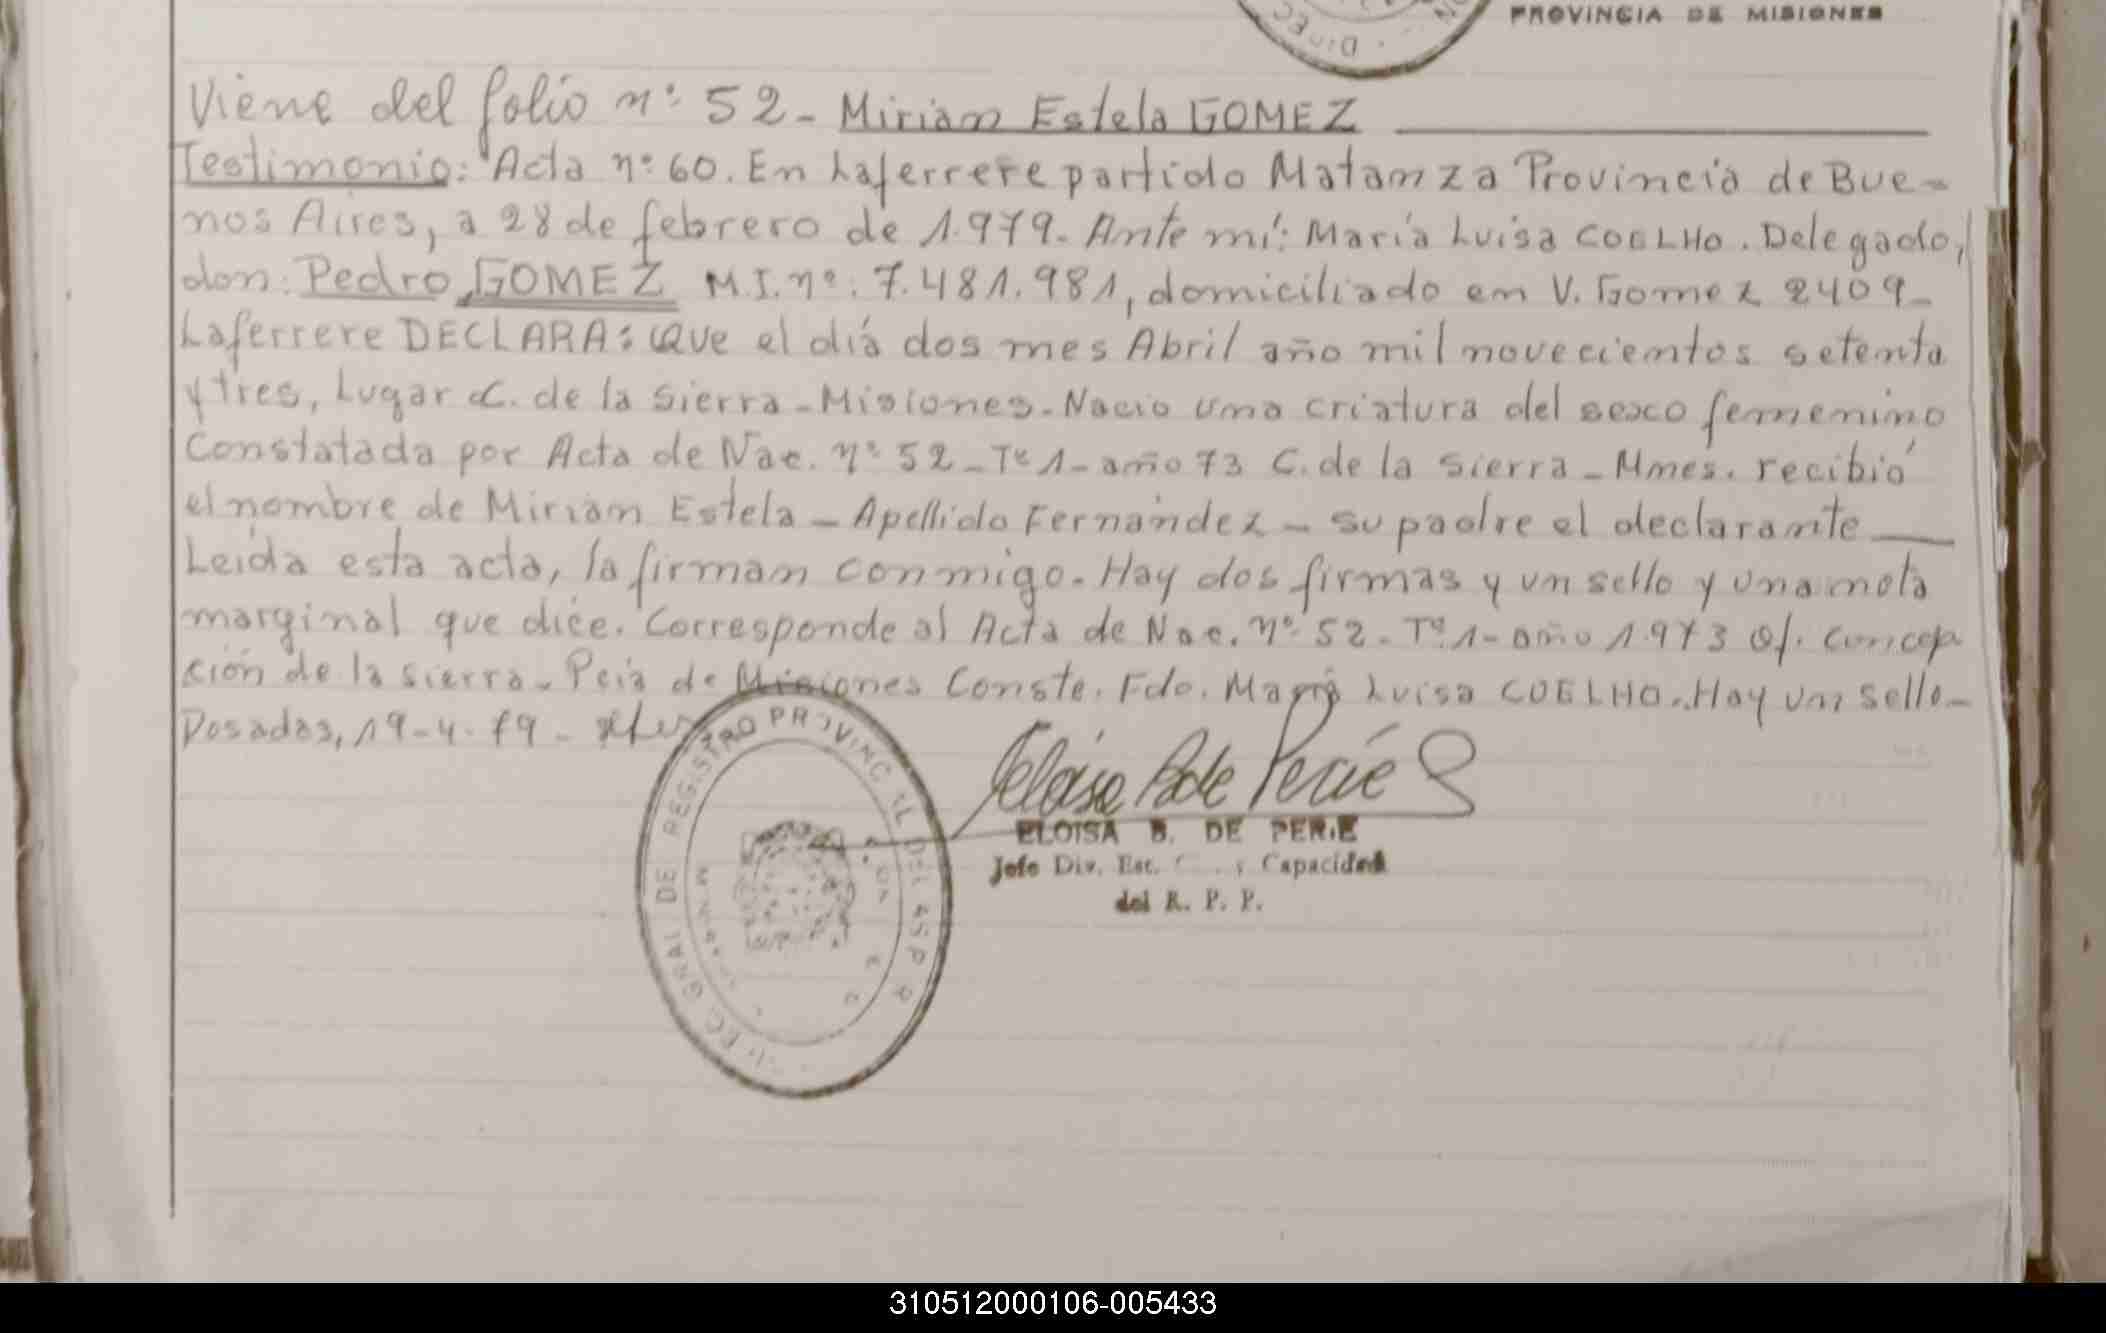 PROVINCIA DE MISIONES
DIREC
Viene del folio nº 52 - Mirian Estela GOMEZ
Testimonio: "Acta nº 60. En Laferrere partido Matanza Provincia de Bue-
nos Aires, a 28 de febrero de 1.979. Ante mí: María Luisa COELHO. Delegado,
don: Pedro GOMEZ M.I. nº: 7.481.981, domiciliado en V. Gomez 2409-
Laferrere DECLARA: Que el día dos mes Abril año mil novecientos setenta
y tres, Lugar C. de la Sierra - Misiones - Nacio una criatura del sexo femenino
Constatada por Acta de Nac. nº 52 - Tº 1 - año 73 C. de la Sierra - Mnes. recibió
el nombre de Mirian Estela - Apellido Fernández - su padre el declarante
Leída esta acta, la firman conmigo. Hay dos firmas y un sello y una nota
marginal que dice. Corresponde al Acta de Nac. nº 52 - Tº 1 - año 1.973 Of. Concep
ción de la sierra - Pcia de Misiones Conste. Fdo. María Luisa COELHO. Hay un sello -
Posadas, 19-4-79 -
REGISTRO PROVINC
ELOISA B. DE PERIE
Jefe Div. Est. C y Capacidad
del R. P. P.
310512000106-005433